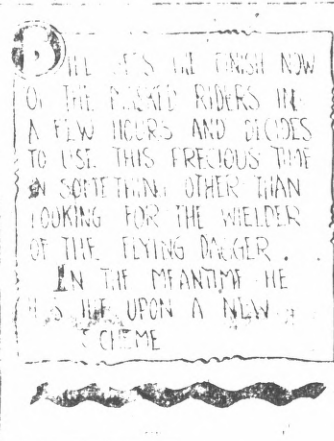 NOW
OF THE MASKED RIDERS IN
A FEW HOURS AND DECIDES
TO USE THIS PRECIOUS TIME
IN SOMETHING OTHER THAN
LOOKING FOR THE WIELDER
OF THE FLYING DAGGER.
IN THE MEANTIME HE
UPON A NEW
SCHEME